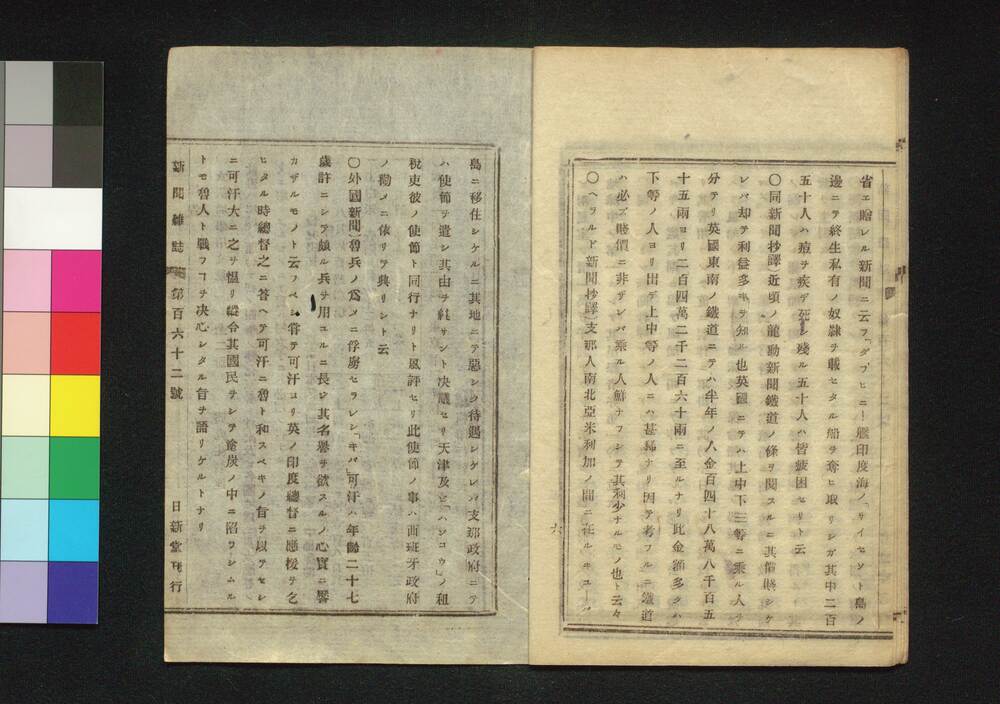 省ェ贈レル新聞ニ云フ「ダフヒニー」艦印度海ノ「サイセソト島ノ
邊ニテ終生私有ノ奴隷ヲ載セタル船ヲ奪ヒ取リシガ其中二百
五十人ハ痘ヲ疾デ死シ殘ル五十人ハ皆疲困セリト云
〇同新聞抄譯)近頃ノ龍動新聞鐵道ノ條ヲ閲スルニ其價賤シケ
レバ却テ利益多キヲ知ル也英國ニテハ上中下三等ニ乘ル人ヲ
分テリ英國東南ノ鐵道ニテハ半年ノ入金百四十八萬八千百五
十五兩ヨリ二百四萬二千二百六十兩ニ至ルナリ此金額多クハ
下等ノ人ヨリ出デ上中等ノ人ニハ甚稀ナリ因テ考フルニ鐵道
ハ必ズ賤價ニ非ザレバ乘ル人鮮ナフシテ其利少ナルモノ也ト云々
〇ヘラルド新聞抄譯)支那人南北亞米利加ノ間ニ在ルキユーバ
六
島ニ移住シケルニ其地ニテ惡シク待遇シケレバ支那政府ニテ
ハ使節ヲ遣シ其由ヲ糺サント决議セリ天津及ヒ「ハンコウ」ノ租
稅吏彼ノ使節ト同行ナリト風評セリ此使節ノ事ハ西班牙政府
ノ勸メニ依リテ興リシト云
〇外國新聞)魯兵ノ爲メニ俘虜セラレシ「キバ」可汗ハ年齡二十七
歲許ニシテ頗ル兵ヲ用ユルニ長シ其名譽ヲ欲スルノ心實ニ響
カザルモノト云フベシ甞テ可汗ヨリ英ノ印度總督ニ應援ヲ乞
ヒタル時總督之ニ答ヘテ可汗ニ魯ト和スベキノ旨ヲ以テセシ
ニ可汗大ニ之ヲ慍リ縱令其國民ヲシテ塗炭ノ中ニ陷ラシムル
トモ魯人ト戰フヿヲ决心シタル旨ヲ語リケルトナリ
新聞雜誌 第百六十二號 日新堂刊行